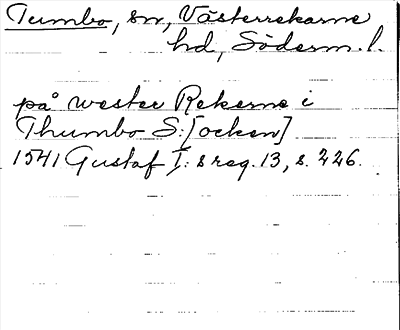 Tumbo, sn, Västerrekarne
hd, Söderm. l.
på wester Rekerne i
Thumbo S:[ocken]
1541 Gustaf I: s reg. 13, s. 226.